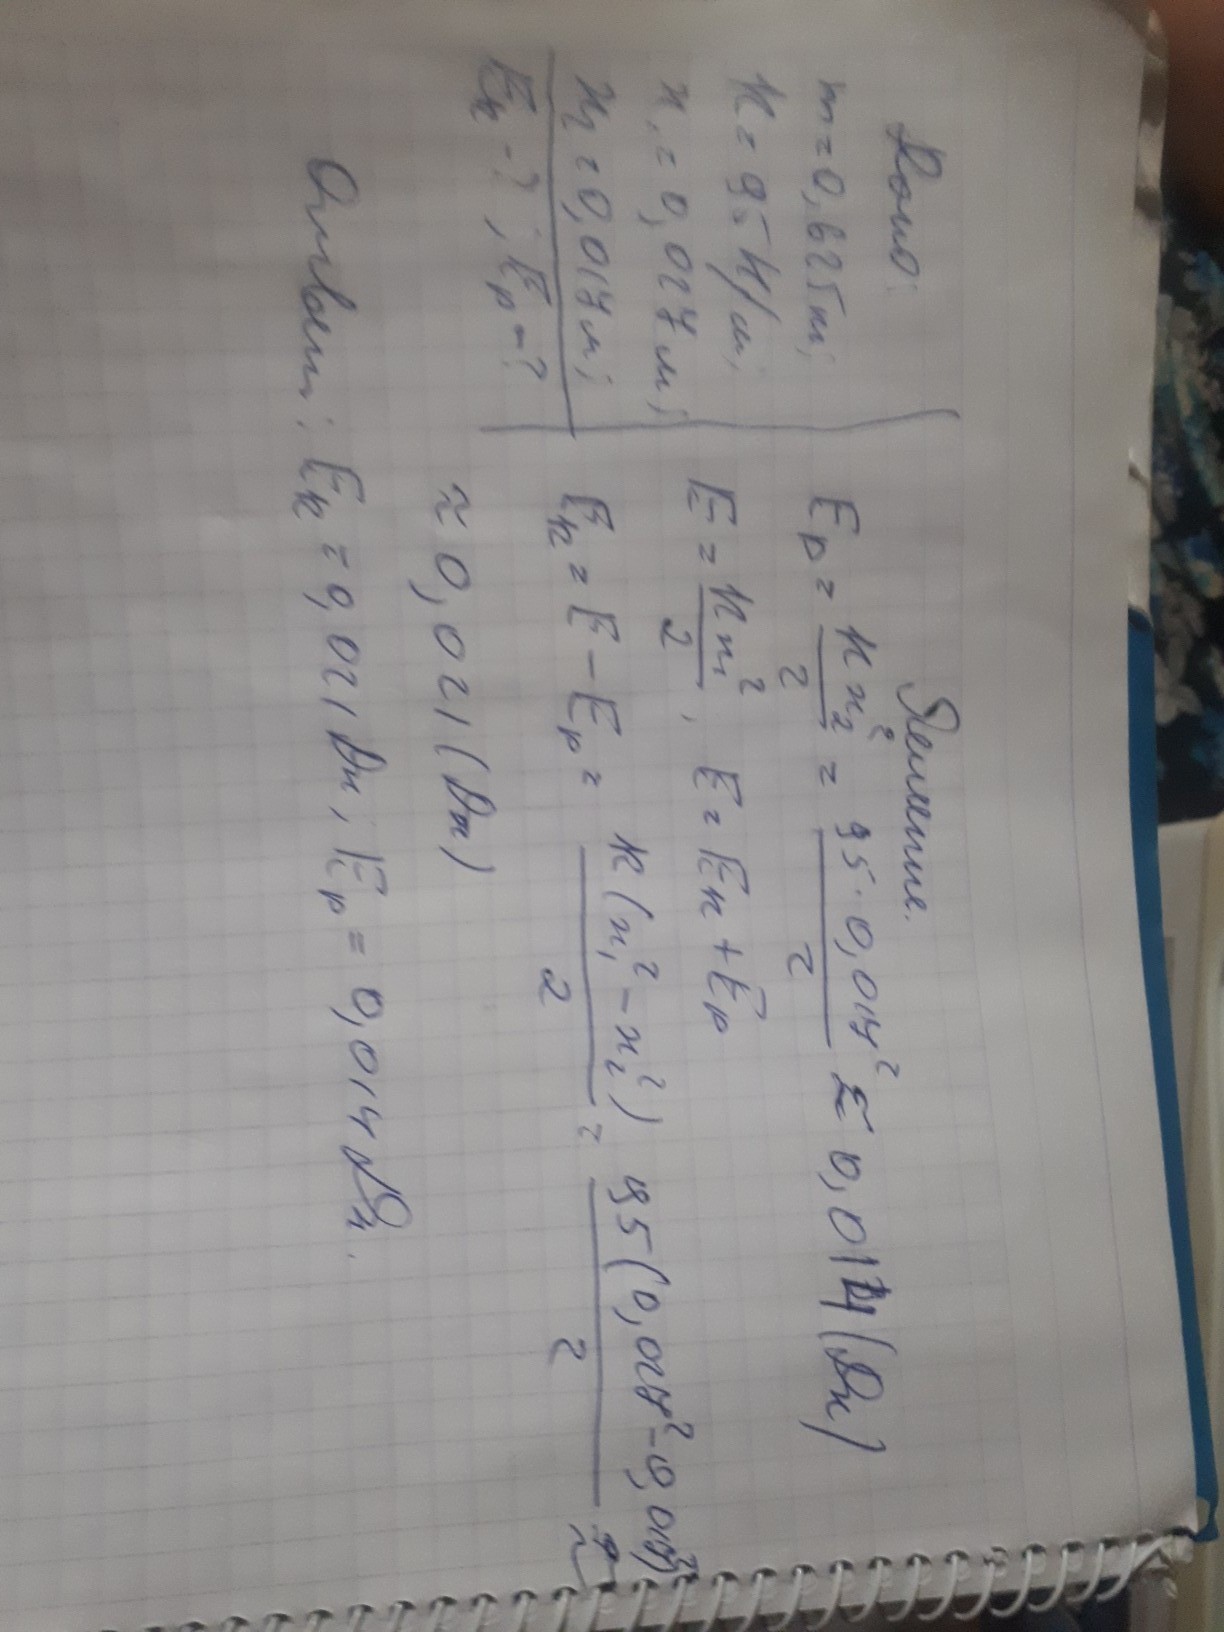 Дано:
m = 0,625 кг;
k = 95 Н/м;
x₁ = 0,027 м;
x₂ = 0,017 м;
Eк - ?; Eр - ?
Решение.
Eр = kx₂²/2 = 95·0,017²/2 ≈ 0,014 (Дж)
E = kx₁²/2, E = Eк + Eр
Eк = E - Eр = k(x₁² - x₂²)/2 = 95(0,027² - 0,017²)/2 ≈
≈ 0,021 (Дж)
Ответ: Eк = 0,021 Дж; Eр = 0,014 Дж.